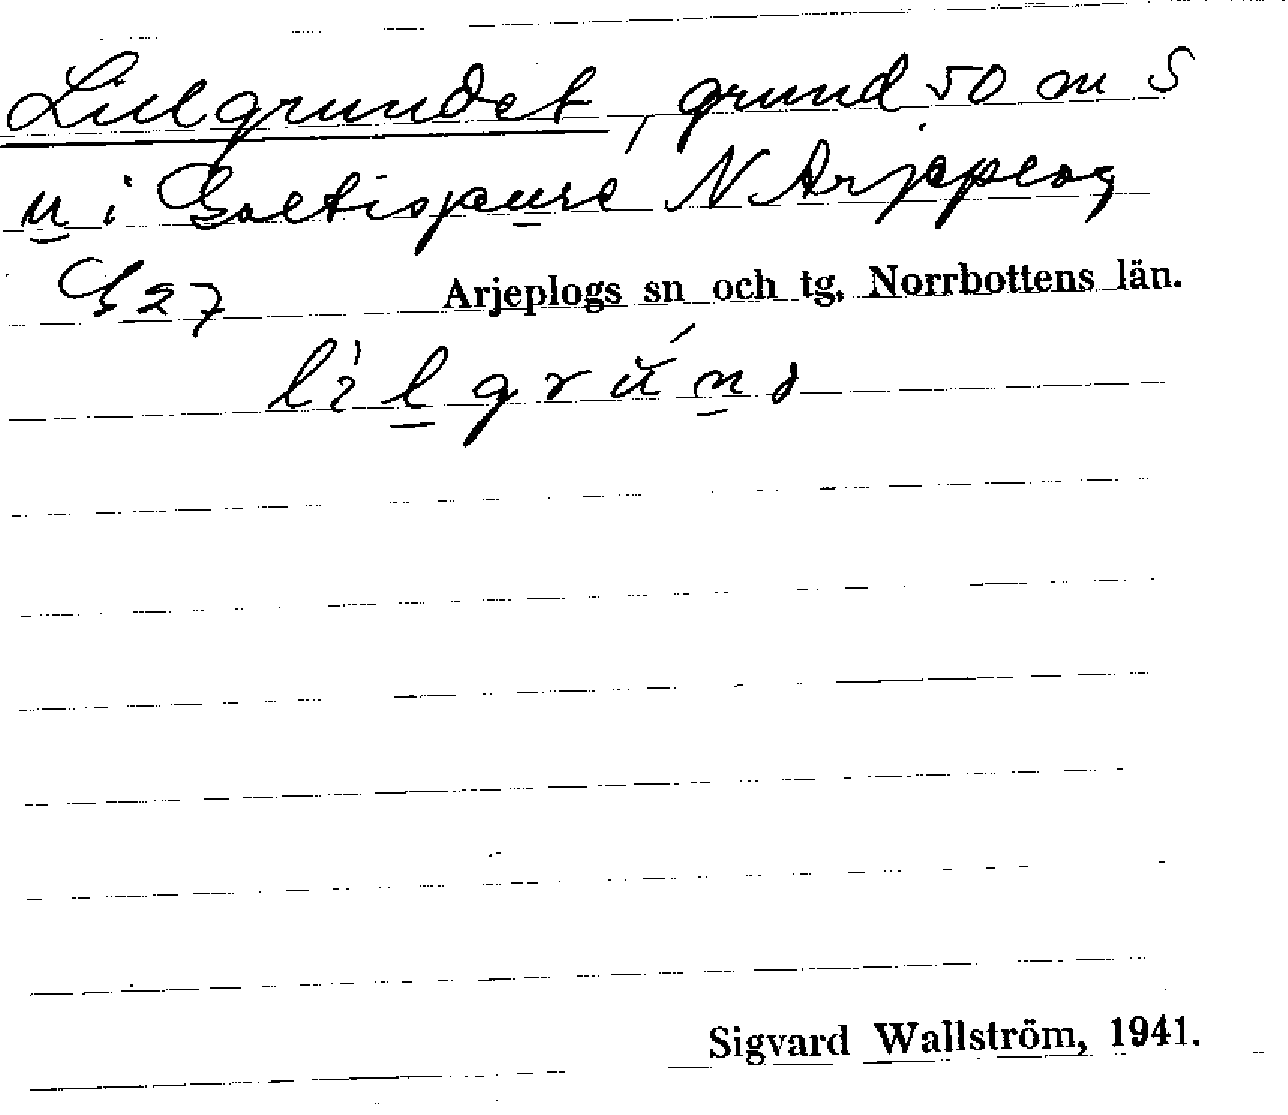 Lillgrundet, grund 50 m S
u i N Arjeplog
G 27 Arjeplogs sn och tg, Norrbottens län.
Sigvard Wallström, 1941.